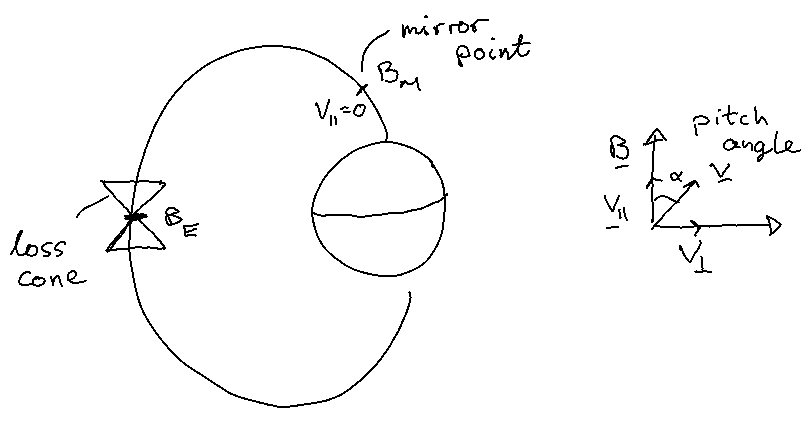 mirror
point
B_M
V_{||}=0
B_E
loss
cone
pitch
angle
B
α
V
V_{||}
V_⊥